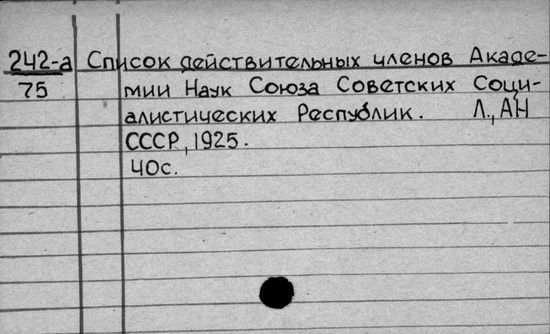 242-а Список действительных членов Акаде-
75 мии Наук Союза Советских Соци-
алистических Республик. Л., АН
СССР, 1925.
40с.